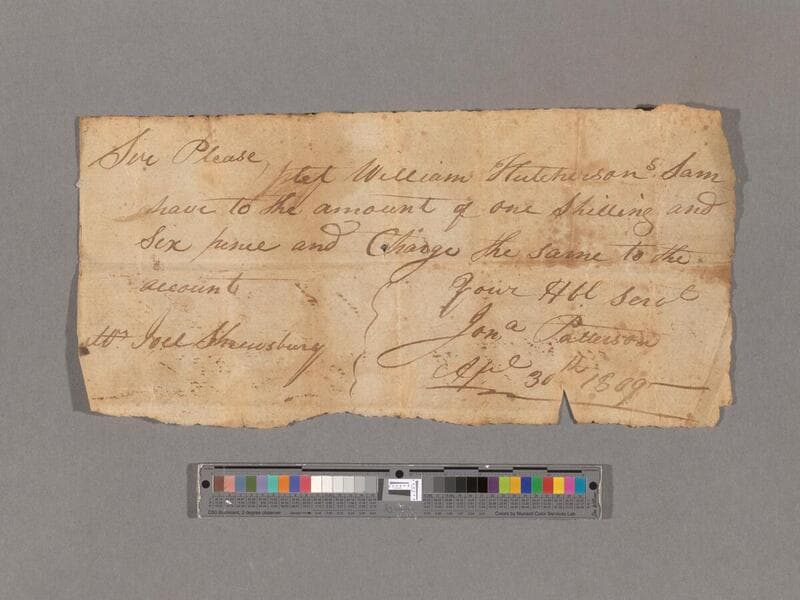 Sir Please
let William Hutcherson's Sam
have to the amount of one Shilling and
Six pence and Charge the same to the
account
Your Hbl Servt
Mr Joel Shrewsbury
Jona Patterson
Apl 30th 1809